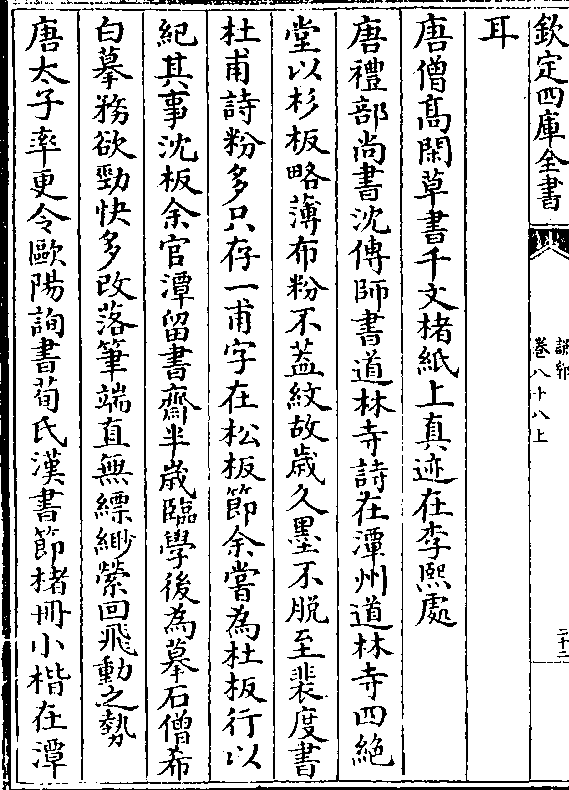 欽定四庫全書
說郛
卷八十八上
二十二
耳
唐僧髙閑草書千文楮紙上真迹在李熙處
唐禮部尚書沈傳師書道林寺詩在潭州道林寺四絶
堂以杉板略薄布粉不葢紋故歳久墨不脱至裴度書
杜甫詩粉多只存一甫字在松板節余嘗為杜板行以
紀其事沈板余官潭留書齋半歳臨學後為摹石僧希
白摹務欲勁快多改落筆端直無縹緲縈回飛動之勢
唐太子率更令歐陽詢書荀氏漢書節楮冊小楷在潭